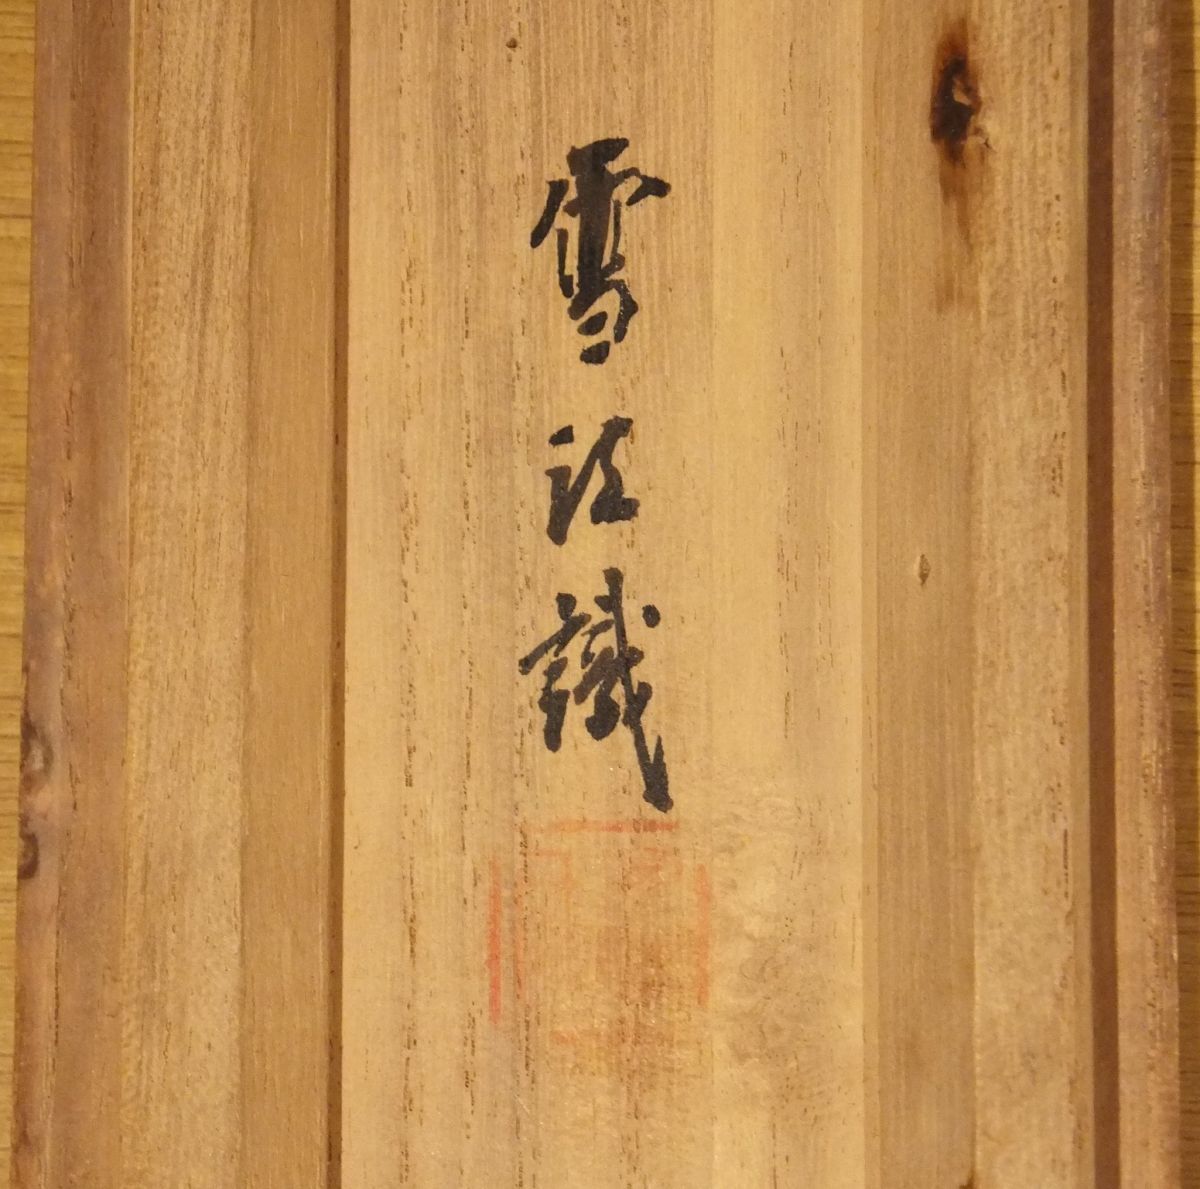 雪江識